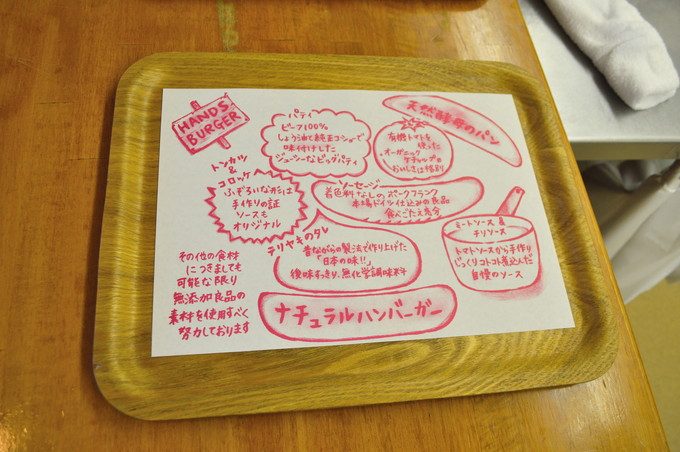 HANDS
BURGER
パティ
ビーフ100%
しょう油で純正コショーで
味付けした
ジューシーなビッグパティ
天然酵母のパン
有機トマトを
使った
オーガニック
ケチャップの
おいしさは格別
トンカツ
&
コロッケ
ふぞろいながらは
手作りの証
ソースも
オリジナル
ソーセージ
着色料なしのポークフランク
本場ドイツ仕込みの良品
食べごたえ充分
ミートソース &
チリソース
トマトソースから手作り
じっくりコトコト煮込んだ
自慢のソース
テリヤキのタレ
昔ながらの製法で作り上げた
「日本の味!!」
後味すっきり、無化学調味料
その他の食材
につきましても
可能な限り
無添加良品の
素材を使用すべく
努力しております
ナチュラルハンバーガー